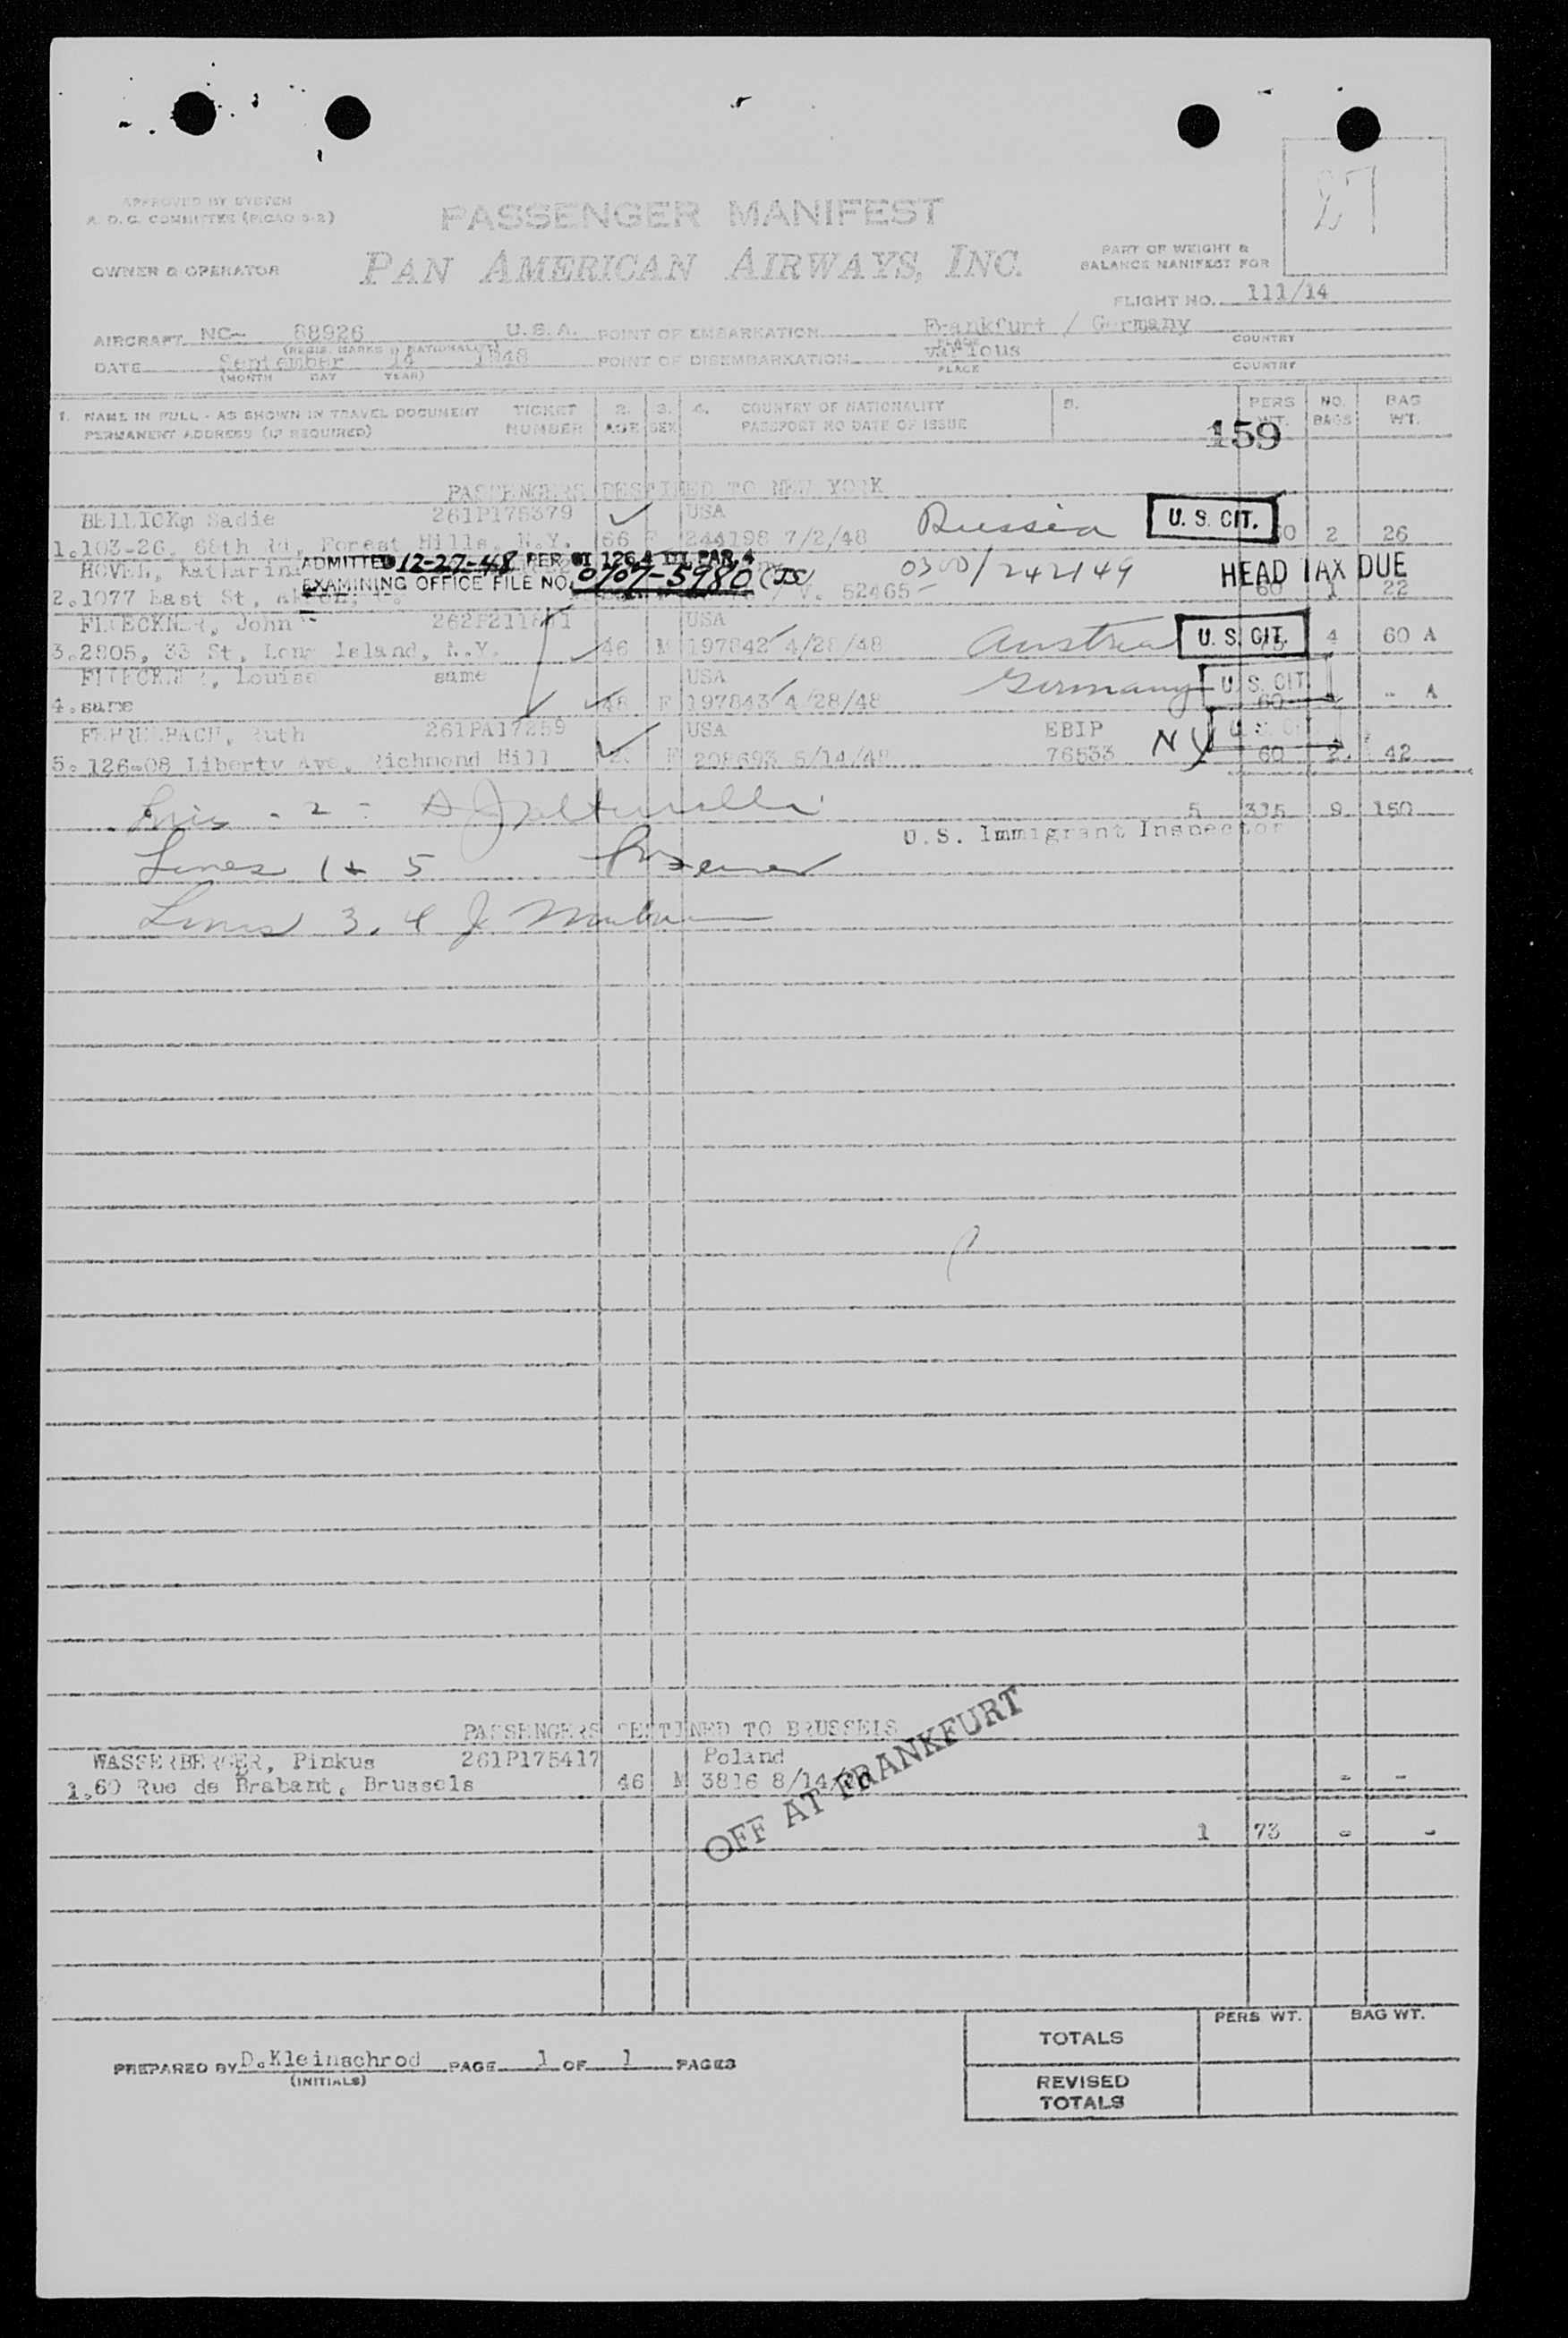 27
APPROVED BY SYSTEM
A. D. C. COMMITTEE (PICAO 9-2)
PASSENGER MANIFEST
OWNER & OPERATOR
PAN AMERICAN AIRWAYS, INC.
PART OF WEIGHT &
BALANCE MANIFEST FOR
FLIGHT NO. 111/14
AIRCRAFT NC- 88926 U.S.A. POINT OF EMBARKATION Frankfurt / Germany
(REGIS. MARKS & NATIONALITY) PLACE COUNTRY
DATE September 14 1948 POINT OF DISEMBARKATION various
(MONTH DAY YEAR) PLACE COUNTRY
1. NAME IN FULL - AS SHOWN IN TRAVEL DOCUMENT TICKET 2. 3. 4. COUNTRY OF NATIONALITY 5. PERS NO. BAG
PERMANENT ADDRESS (IF REQUIRED) NUMBER AGE SEX PASSPORT NO DATE OF ISSUE WT. BAGS WT.
159
PASSENGERS DESTINED TO NEW YORK
BELLICK, Sadie 261P175379 USA Russia U. S. CIT.
1. 103-26, 68th Rd, Forest Hills, N.Y. 66 F 244198 7/2/48 60 2 26
HOVEL, Katharina 0300/242149 HEAD TAX DUE
ADMITTED 12-27-48 PER OI 126.4 III PAR. 4
EXAMINING OFFICE FILE NO. 0107-5980
2. 1077 East St, V. 52465 60 1 22
John USA Austria U. S. CIT.
3. 2805, 33 St, Long Island, N.Y. 46 M 197842 4/28/48 4 60 A
Louise same USA Germany U. S. CIT.
4. same 48 F 197843 4/28/48 60 - A
FEHRENBACH, Ruth 261PA17259 USA EBIP NY U. S. CIT.
5. 126-08 Liberty Ave, Richmond Hill F 208693 5/14/48 76533 60 2 42
5 315 9 150
U.S. Immigrant Inspector
Lines 1 & 5
Lines 3, 4 J
PASSENGERS DESTINED TO BRUSSELS
WASSERBERGER, Pinkus 261P175417 Poland
1. 60 Rue de Brabant, Brussels 46 M 3816 8/14/ - -
OFF AT FRANKFURT
1 73 - -
PERS WT. BAG WT.
TOTALS
PREPARED BY D.Kleinschrod PAGE 1 OF 1 PAGES
(INITIALS)
REVISED
TOTALS